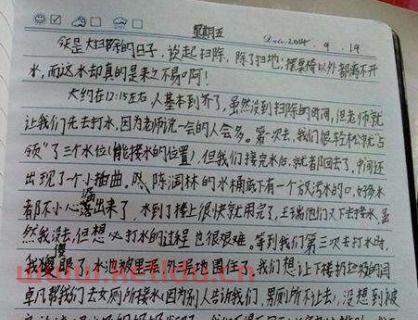 星期五
Date 2014. 9. 19
今天是大扫除的日子,说起扫除,除了扫地,摆桌椅以外都离不开
水,而这水却真的是来之不易啊!
大约在12:15左右人基本到齐了,虽然没到扫除的时间,但老师就
让我们先去打水,因为老师说一会的人会多。第一次去,我们很轻松就“占
领”了三个水位(能接水的位置),但我们接完水后,就都回去了,中间还
出现了一个小插曲,陈润林的水桶底下有一个放污水的口,好多水
都不小心洒出来了,水到了楼上很快就用完了,王瑞他们又下去接水,虽
然我没去,但想必打水的过程也很艰难。等到我们第三次去打水时,
我傻眼了,水池被里三层外三层地围住了,我们想让下楼扔垃圾的闫
卓凡帮我们去女厕所接水(因为别人告诉我们,男厕所不让去),没想到被